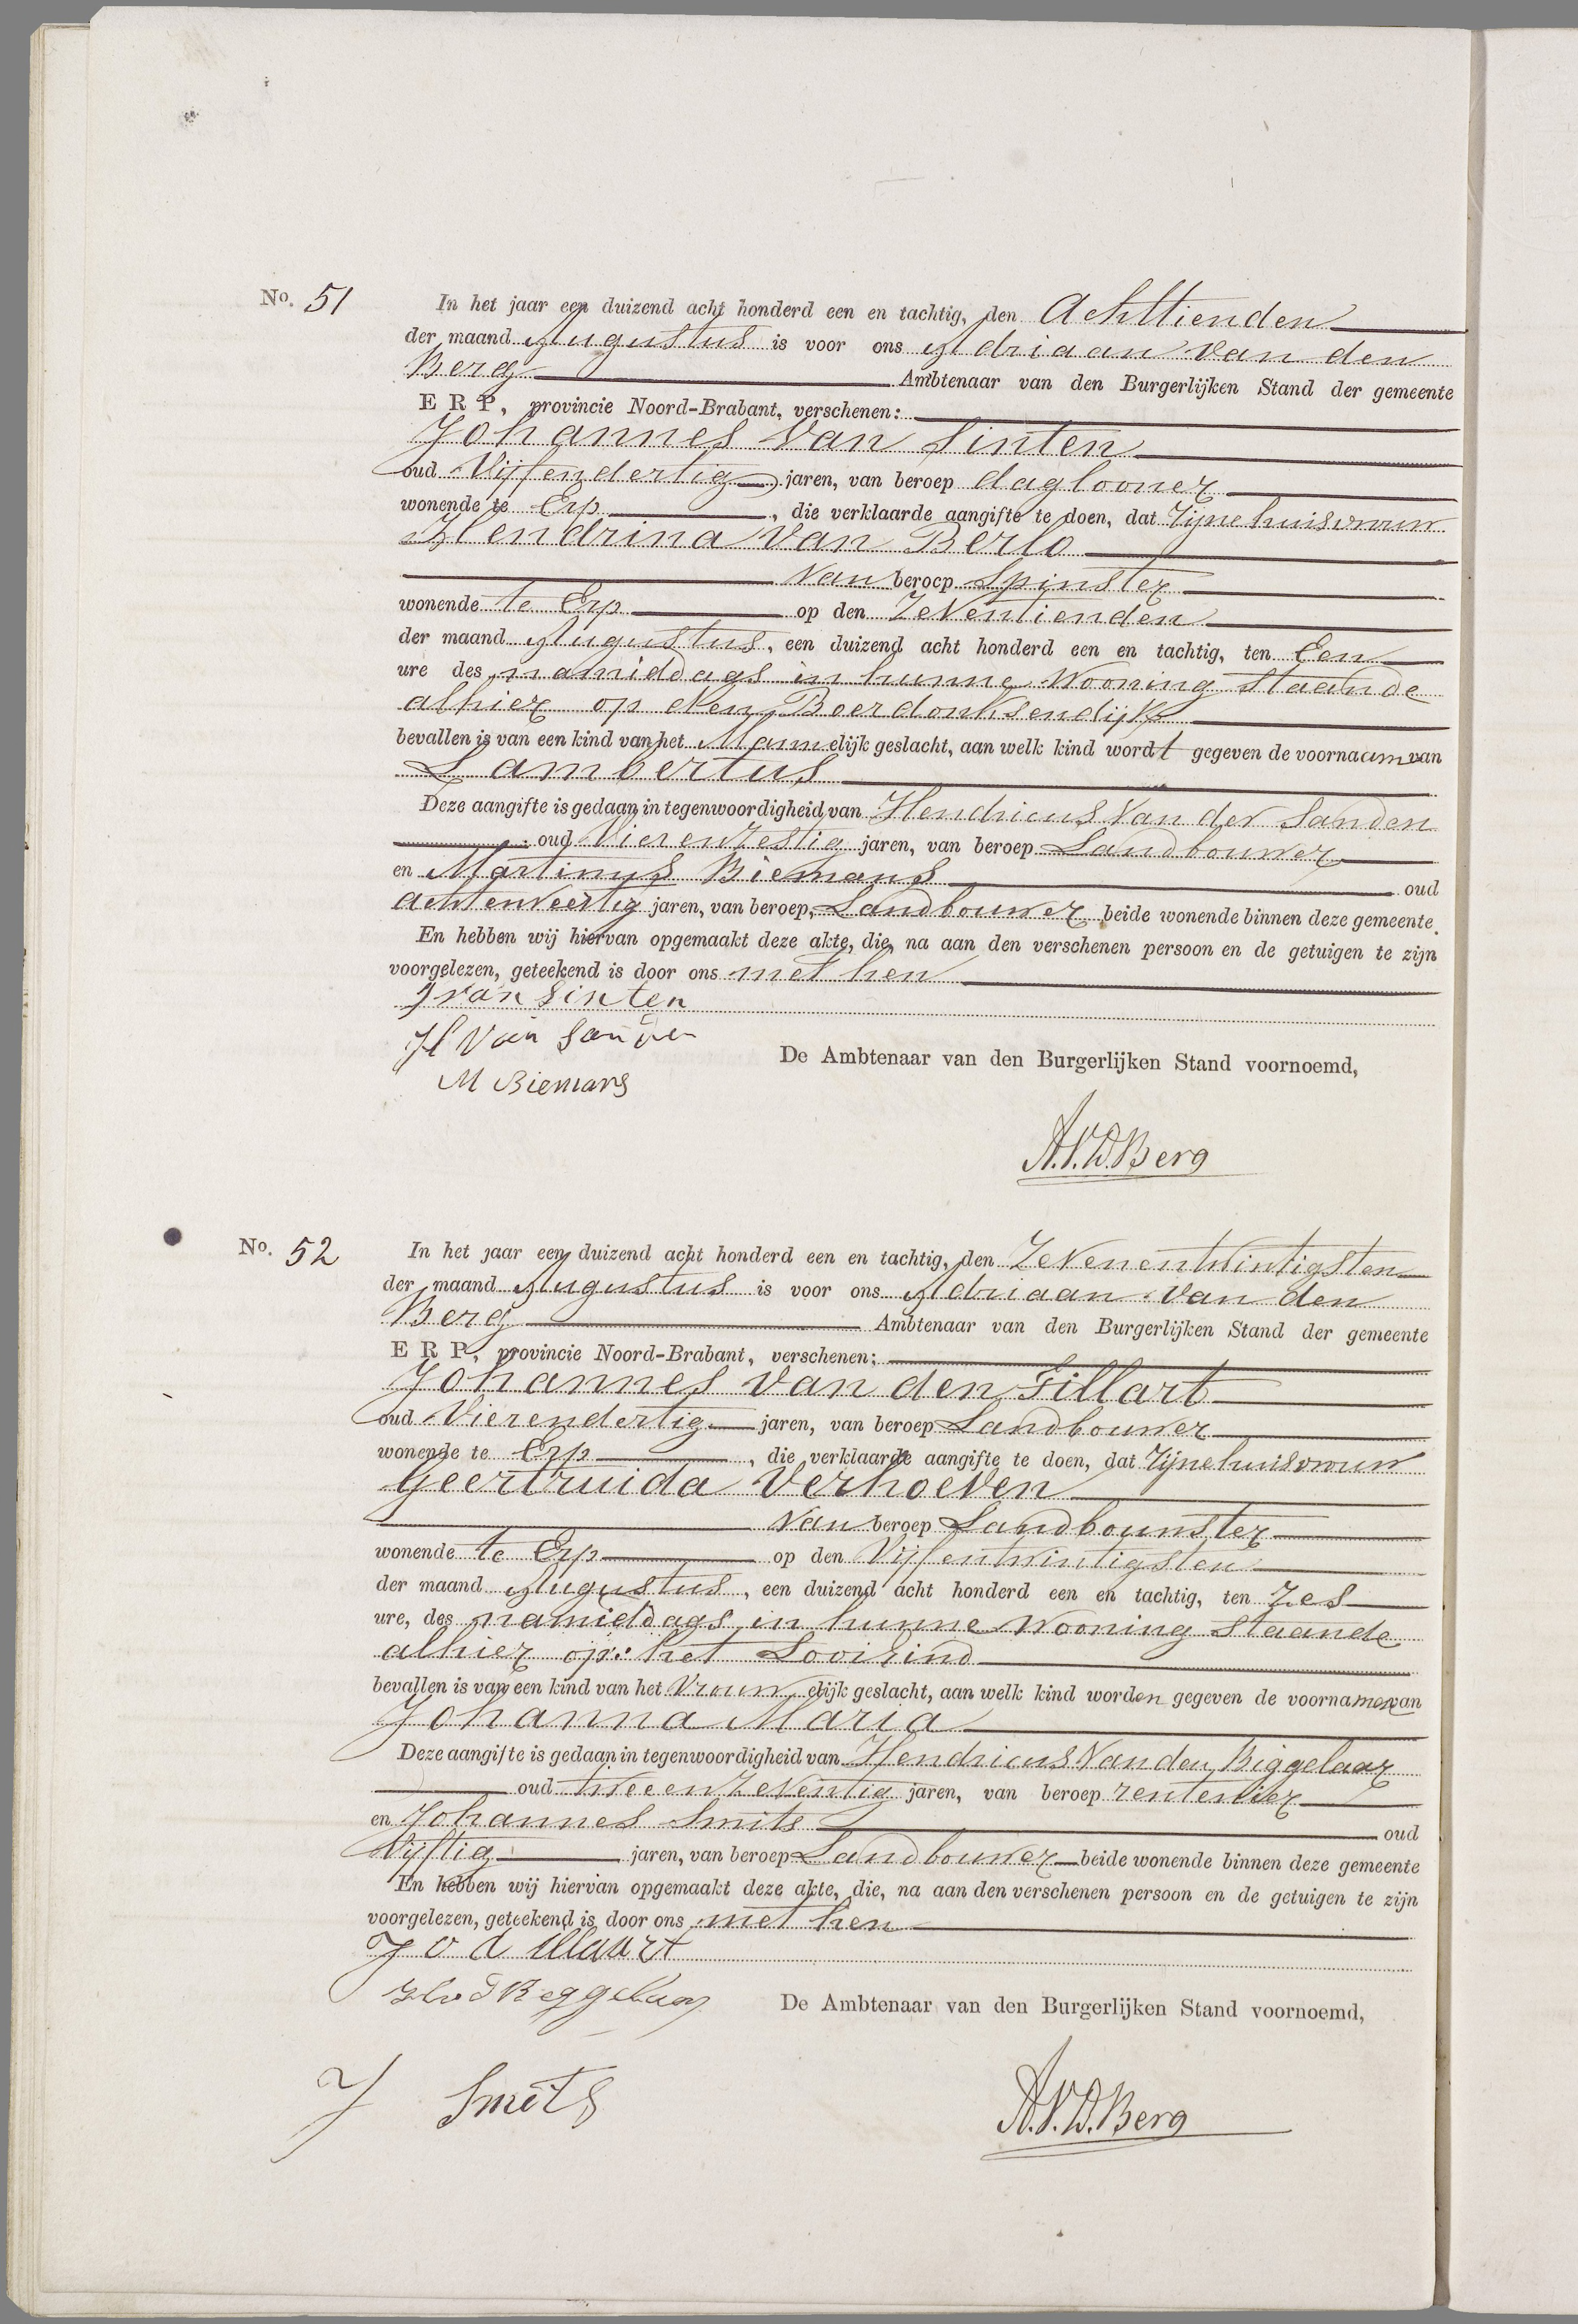 No. 51
In het jaar een duizend acht honderd een en tachtig, den Achttienden
der maand Augustus is voor ons Adriaan van den
Berg Ambtenaar van den Burgerlijken Stand der gemeente
ERP, provincie Noord-Brabant, verschenen:
Johannes van Sinten
oud Vijfendertig jaren, van beroep daglooner
wonende te Erp, die verklaarde aangifte te doen, dat Zijne huisvrouw
Hendrina van Berlo
van beroep Spinster
wonende te Erp op den Zeventienden
der maand Augustus, een duizend acht honderd een en tachtig, ten Een
ure des namiddags in hunne Wooning staande
alhier op den Boerdonksendijk
bevallen is van een kind van het Mannelijk geslacht, aan welk kind wordt gegeven de voornaam van
Lambertus
Deze aangifte is gedaan in tegenwoordigheid van Hendricus van der Sanden
oud Vierenzestig jaren, van beroep Landbouwer
en Martinus Biemans oud
achtenveertig jaren, van beroep, Landbouwer beide wonende binnen deze gemeente.
En hebben wij hiervan opgemaakt deze akte, die, na aan den verschenen persoon en de getuigen te zijn
voorgelezen, geteekend is door ons met hen
J van Sinten
H Van Sanden
M Biemans
De Ambtenaar van den Burgerlijken Stand voornoemd,
A.V.D.Berg
No. 52
In het jaar een duizend acht honderd een en tachtig, den Zevenentwintigsten
der maand Augustus is voor ons Adriaan van den
Berg Ambtenaar van den Burgerlijken Stand der gemeente
ERP, provincie Noord-Brabant, verschenen:
Johannes van den Tillart
oud Vierendertig jaren, van beroep Landbouwer
wonende te Erp, die verklaarde aangifte te doen, dat Zijne huisvrouw
Geertruida Verhoeven
van beroep Landbouwster
wonende te Erp op den Vijfentwintigsten
der maand Augustus, een duizend acht honderd een en tachtig, ten zes
ure, des namiddags in hunne Wooning staande
alhier op het Looieind
bevallen is van een kind van het Vrouwelijk geslacht, aan welk kind worden gegeven de voornamen van
Johanna Maria
Deze aangifte is gedaan in tegenwoordigheid van Hendricus van den Biggelaar
oud tweeenzeventig jaren, van beroep rentenier
en Johannes Smits oud
Vijftig jaren, van beroep Landbouwer beide wonende binnen deze gemeente
En hebben wij hiervan opgemaakt deze akte, die, na aan den verschenen persoon en de getuigen te zijn
voorgelezen, geteekend is door ons met hen
J v d tillaart
H v d Beggelaar
J Smits
De Ambtenaar van den Burgerlijken Stand voornoemd,
A.V.D.Berg